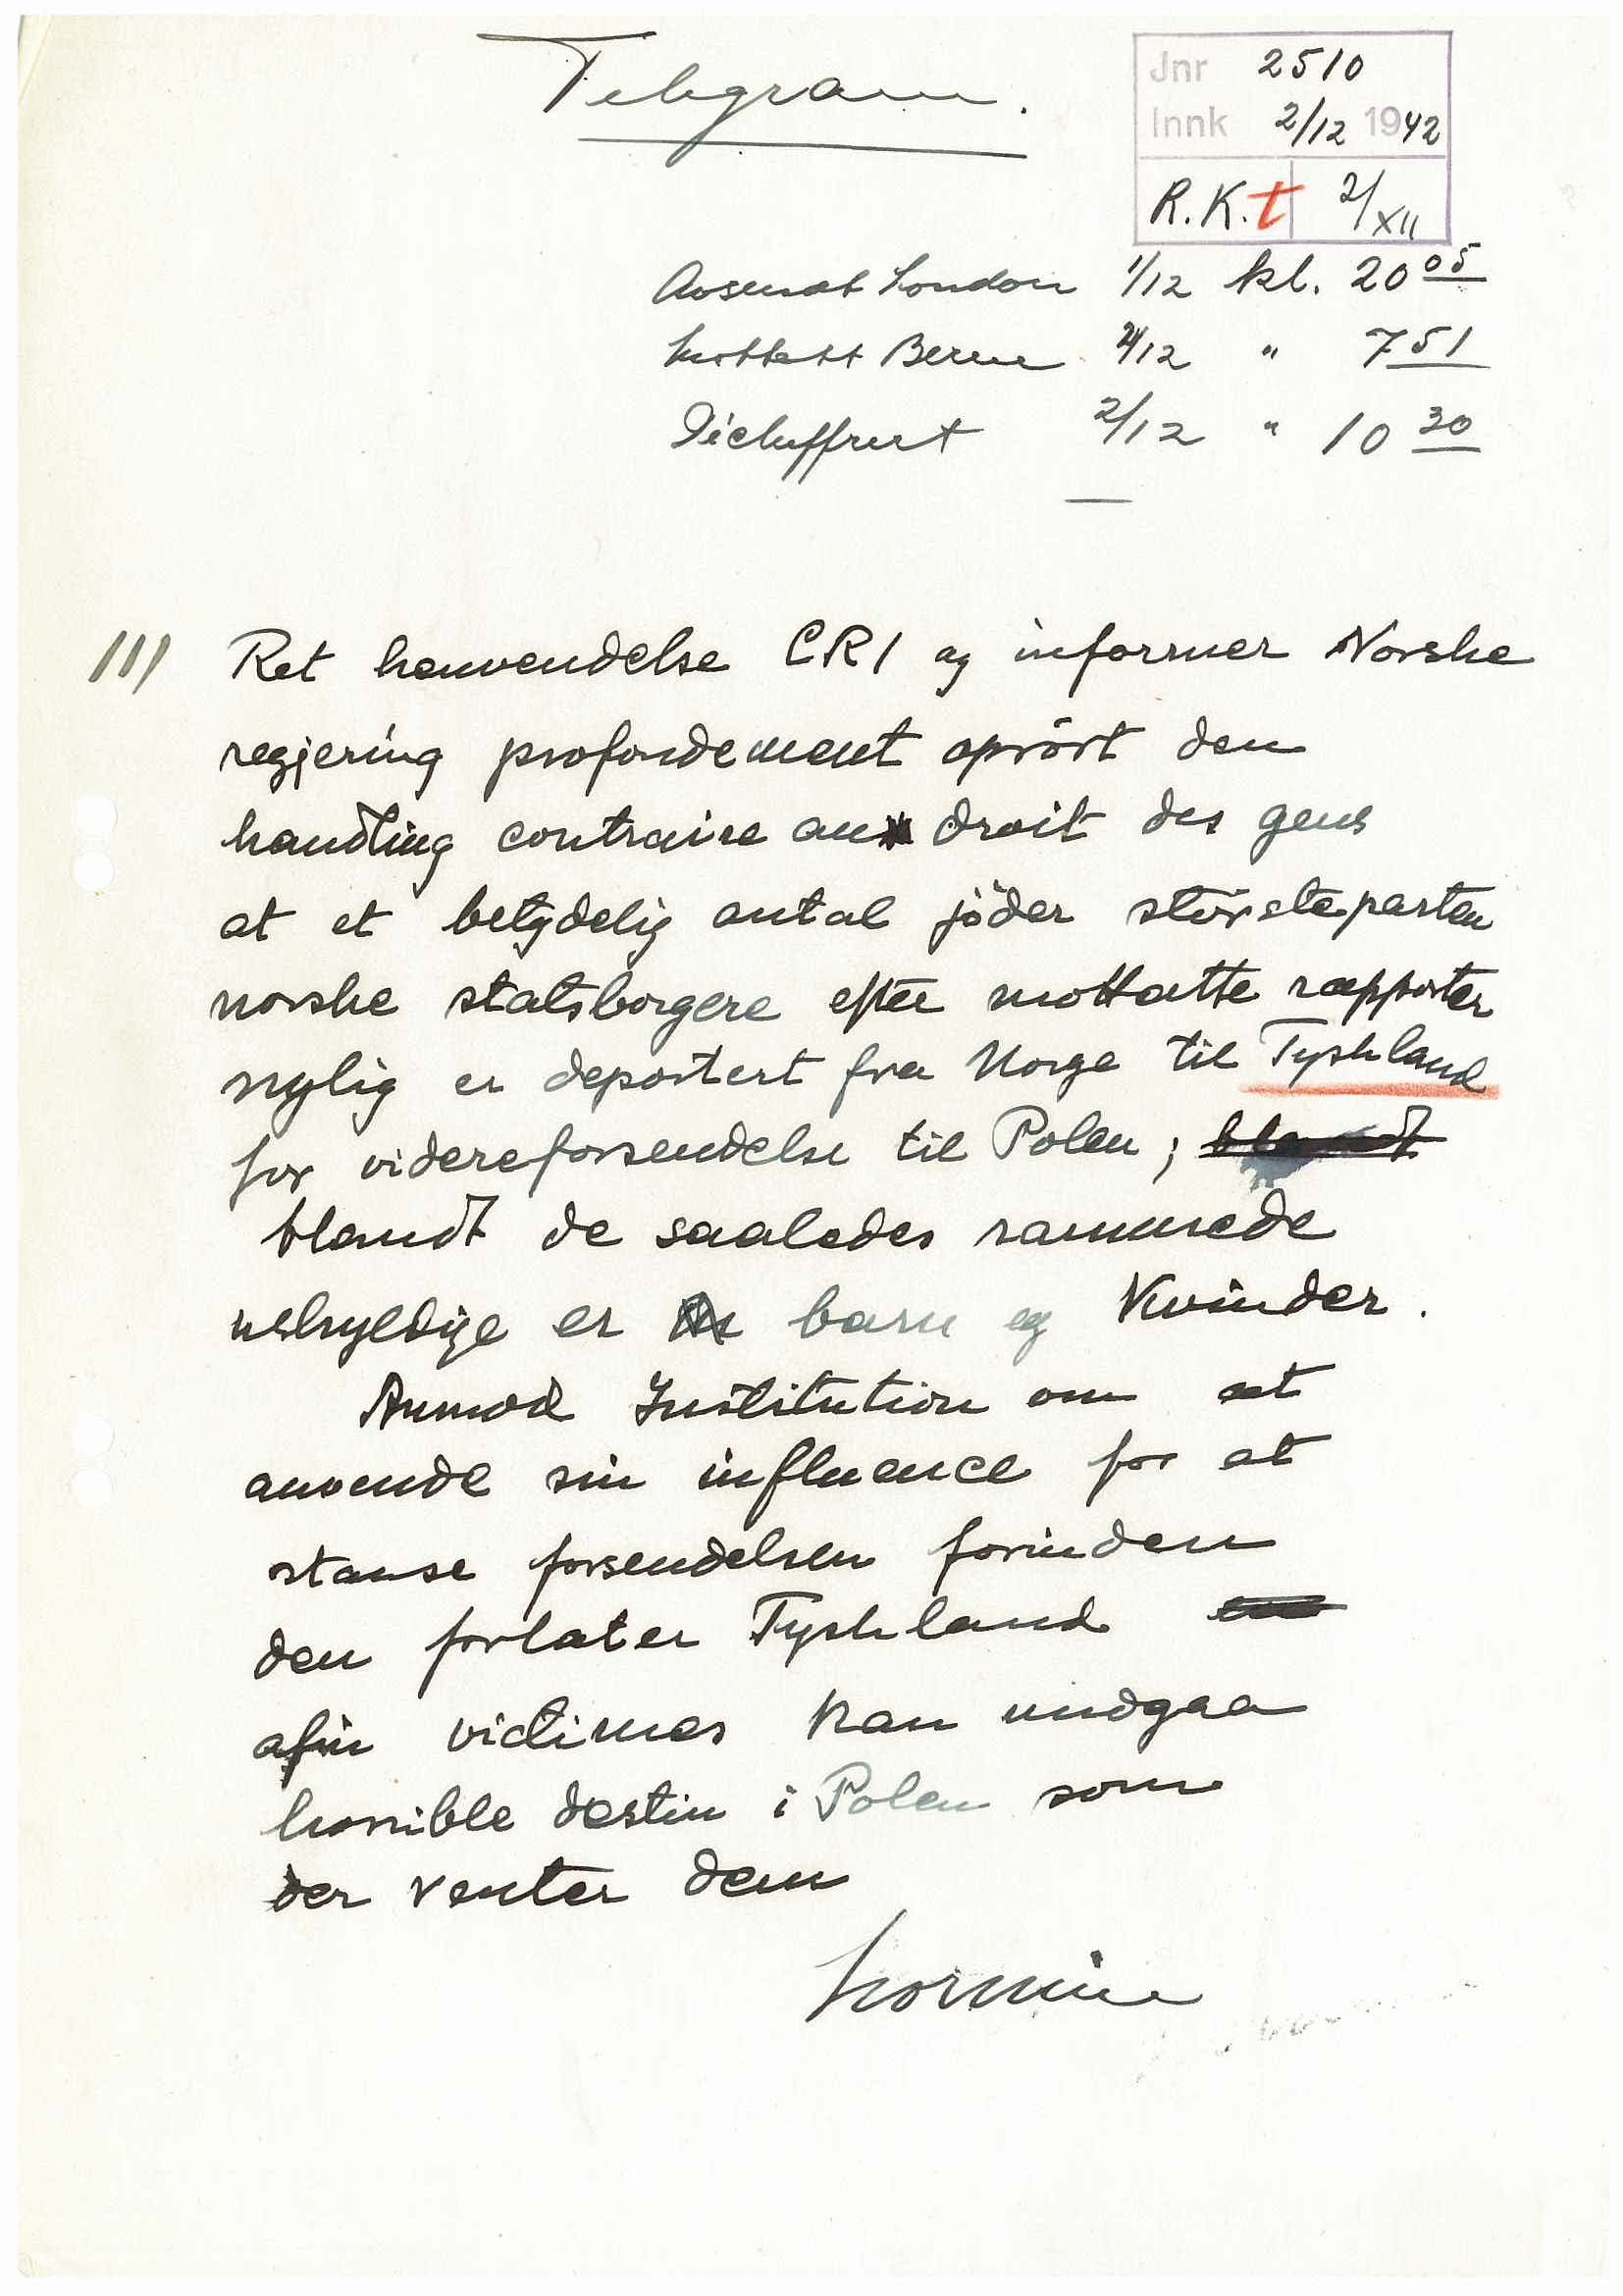 Telegram.
Jnr 2510
Innk 2/12 1942
R.K.t 2/XII
Avsendt London 1/12 kl. 20 05
Mottatt Berne 2/12 " 7 51
Dechiffrert 2/12 " 10 30
111 Ret henvendelse CRI og informer Norske
regjering profondement oprört den
handling contraire au droit des gens
at et betydelig antal jöder störsteparten
norske statsborgere efter mottatte rapporter
nylig er deportert fra Norge til Tyskland
for videreforsendelse til Polen; blandt
blandt de saaledes rammede
uskyldige er barn og Kvinder.
Anmod Institution om at
anvende sin influence for at
stanse forsendelsen forinden
den forlater Tyskland
afin victimes kan undgaa
horrible destin i Polen som
der venter dem